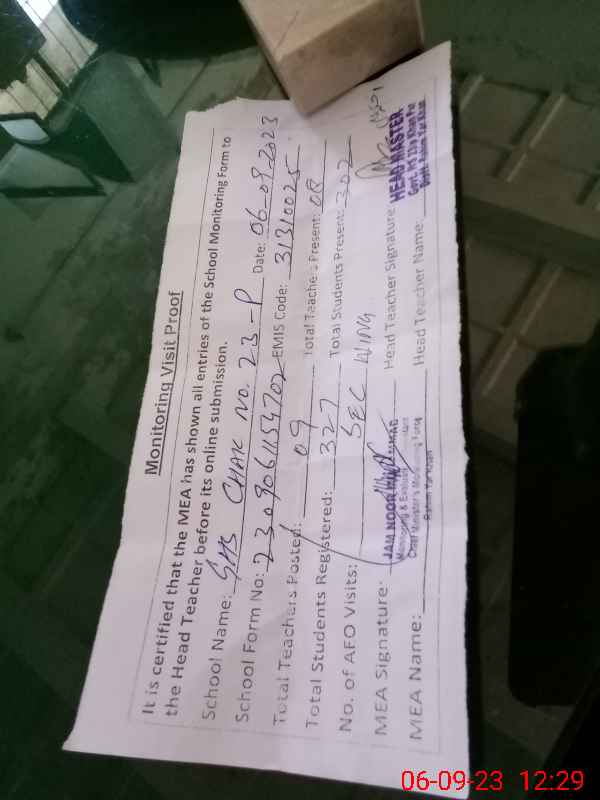 Monitoring Visit Proof
It is certified that the MEA has shown all entries of the School Monitoring Form to
the Head Teacher before its online submission.
School Name: GHS CHAK NO. 23-P Date: 06-09-2023
School Form No: 2309061154702 EMIS Code: 31310025
Total Teachers Posted: 09 Total Teachers Present: 08
Total Students Registered: 327 Total Students Present: 302
No. of AEO Visits: SEC WING
MEA Signature: Head Teacher Signature:
JAM NOOR MUHAMMAD
Monitoring & Evaluation
Chief Minister's Monitoring Force
Rahim Yar Khan
HEAD MASTER
Govt. HS 23/P Khan Pur
Distt. Rahim Yar Khan
MEA Name: Head Teacher Name:
06-09-23 12:29